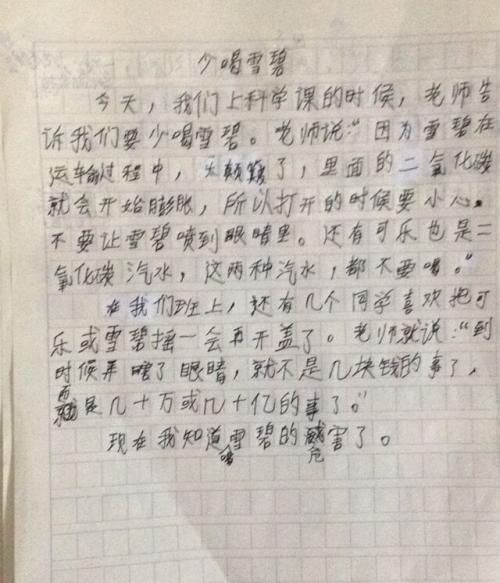 少喝雪碧
今天，我们上科学课的时候，老师告
诉我们要少喝雪碧。老师说：“因为雪碧在
运输过程中，太颠簸了，里面的二氧化碳
就会开始膨胀，所以打开的时候要小心。
不要让雪碧喷到眼睛里。还有可乐也是二
氧化碳汽水，这两种汽水，都不要喝。”
在我们班上，还有几个同学喜欢把可
乐或雪碧摇一会再开盖了。老师就说：“到
时候弄瞎了眼睛，就不是几块钱的事了，
而是几十万或几十亿的事了。”
现在我知道喝雪碧的危害了。